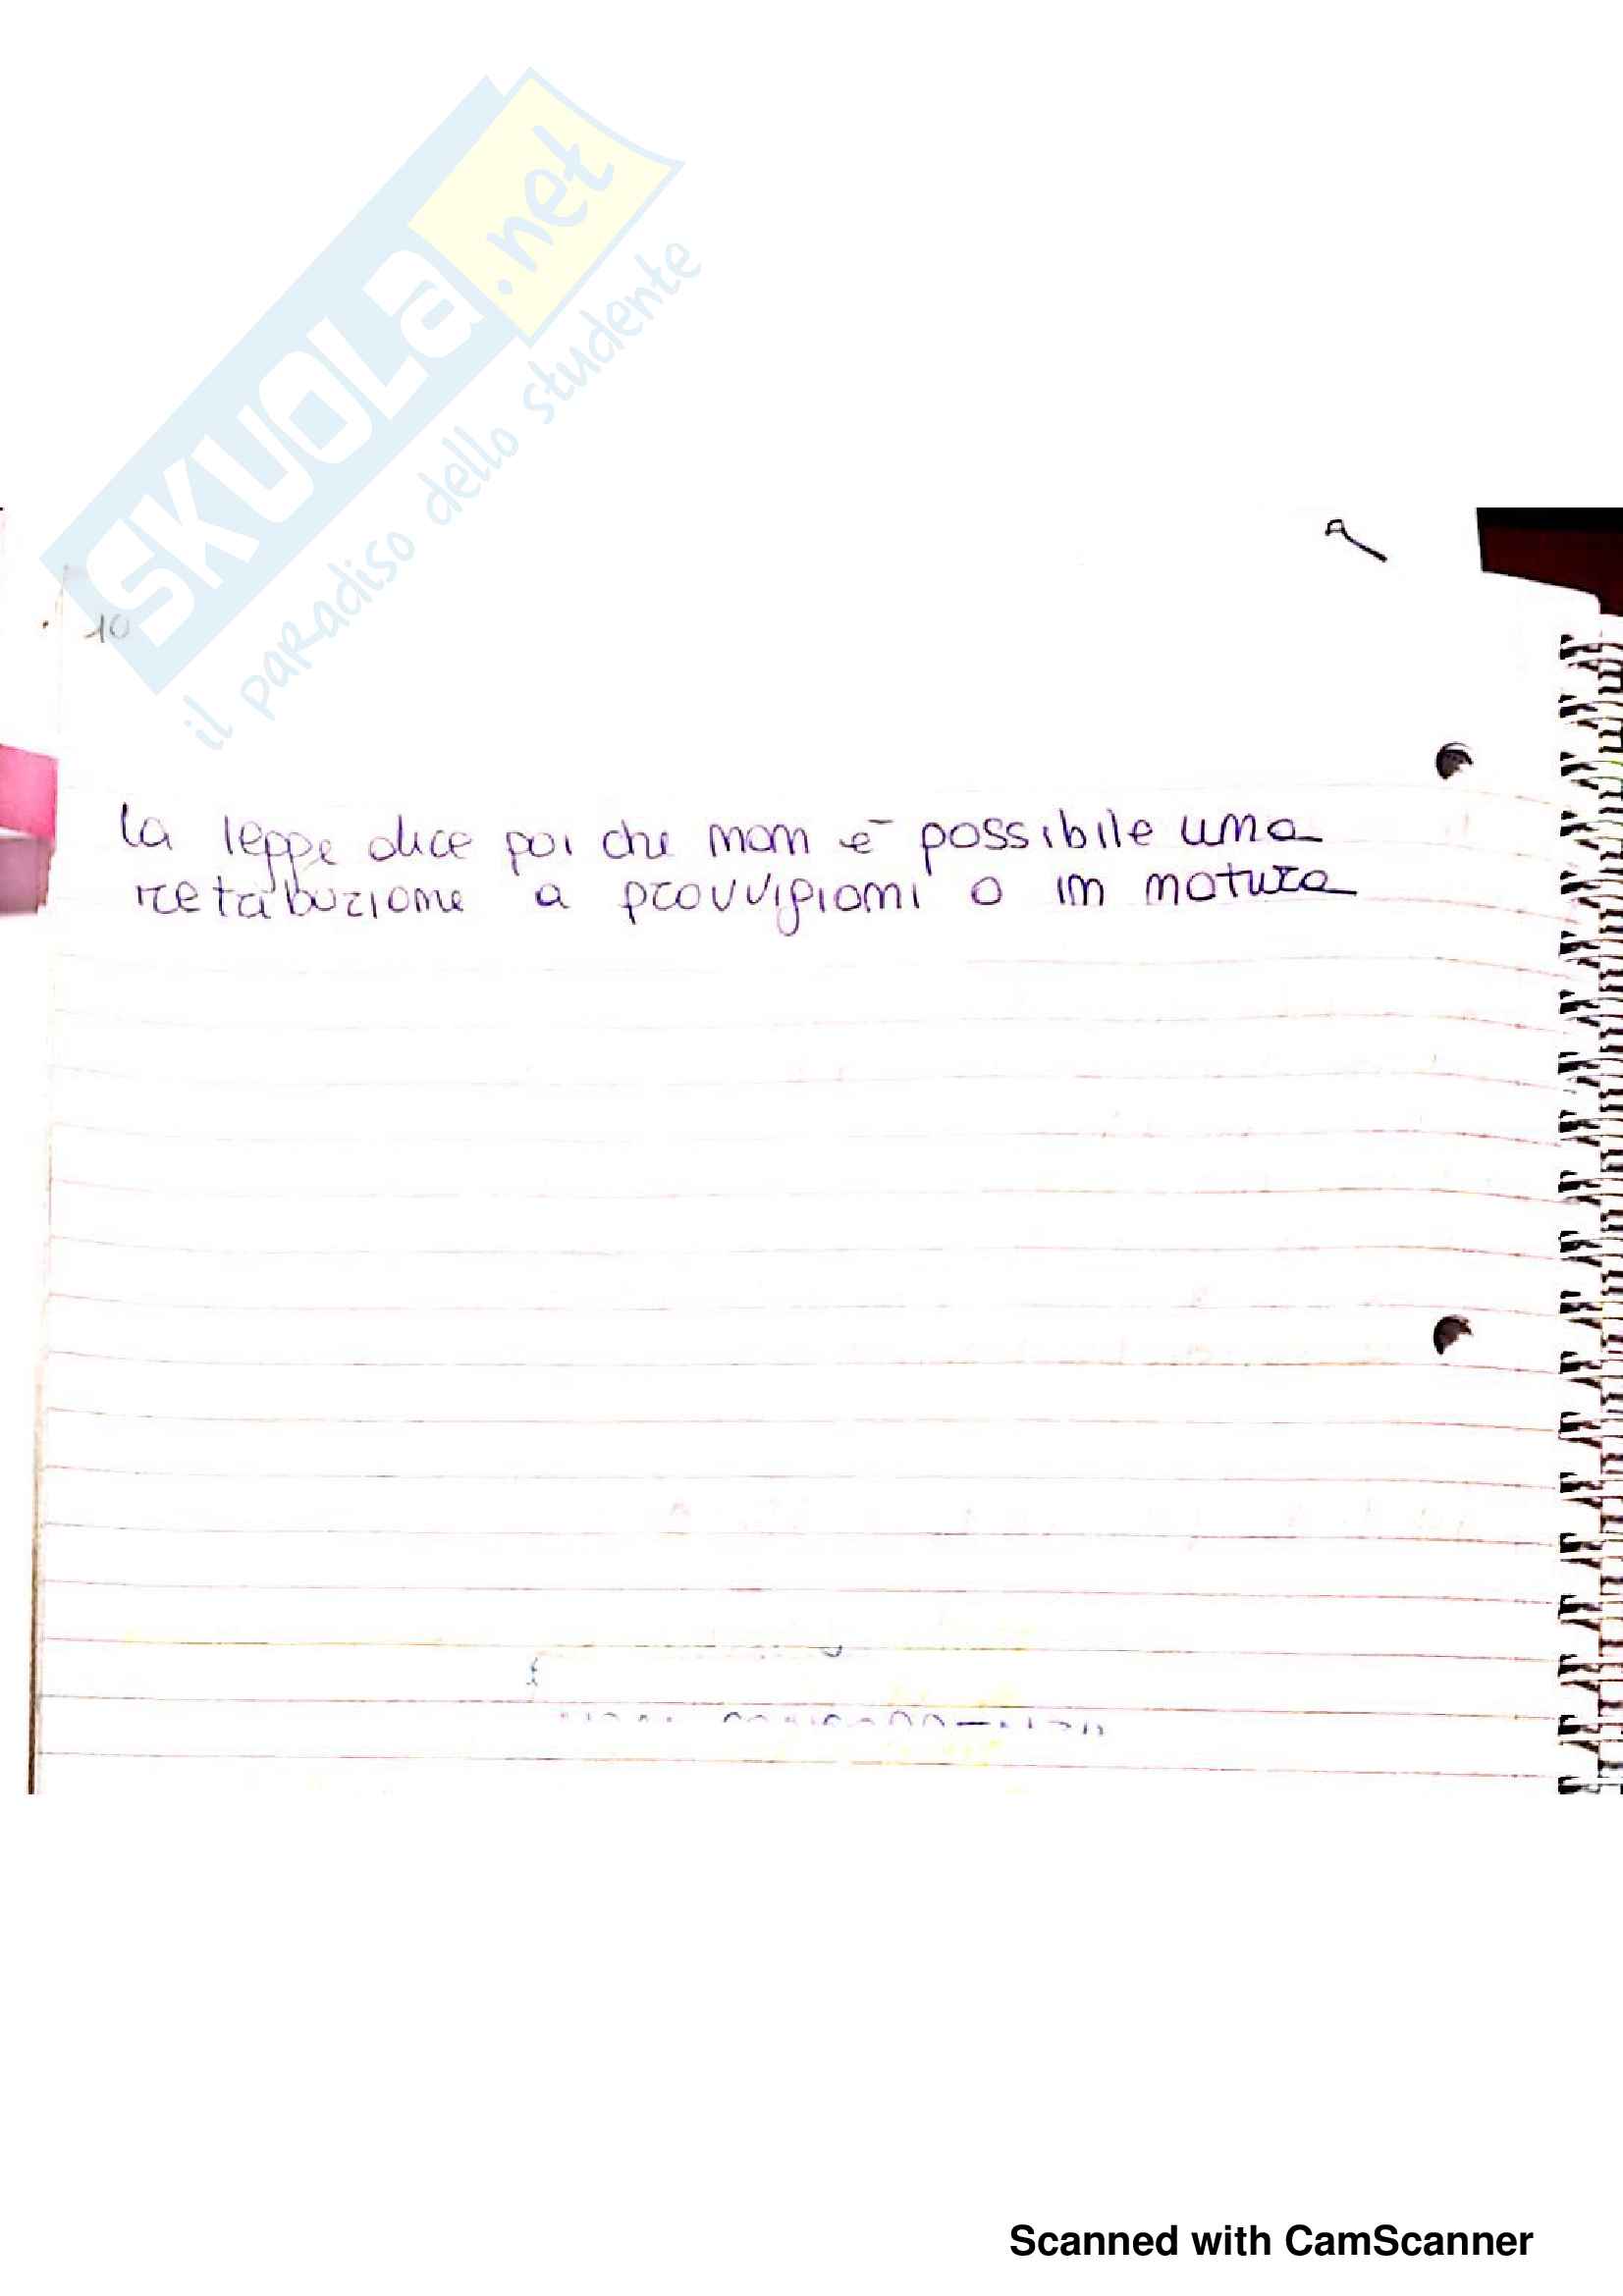 SKUOLa.net
il paradiso dello studente
10
la legge dice poi che non è possibile una
retribuzione a provvigioni o in natura
Scanned with CamScanner